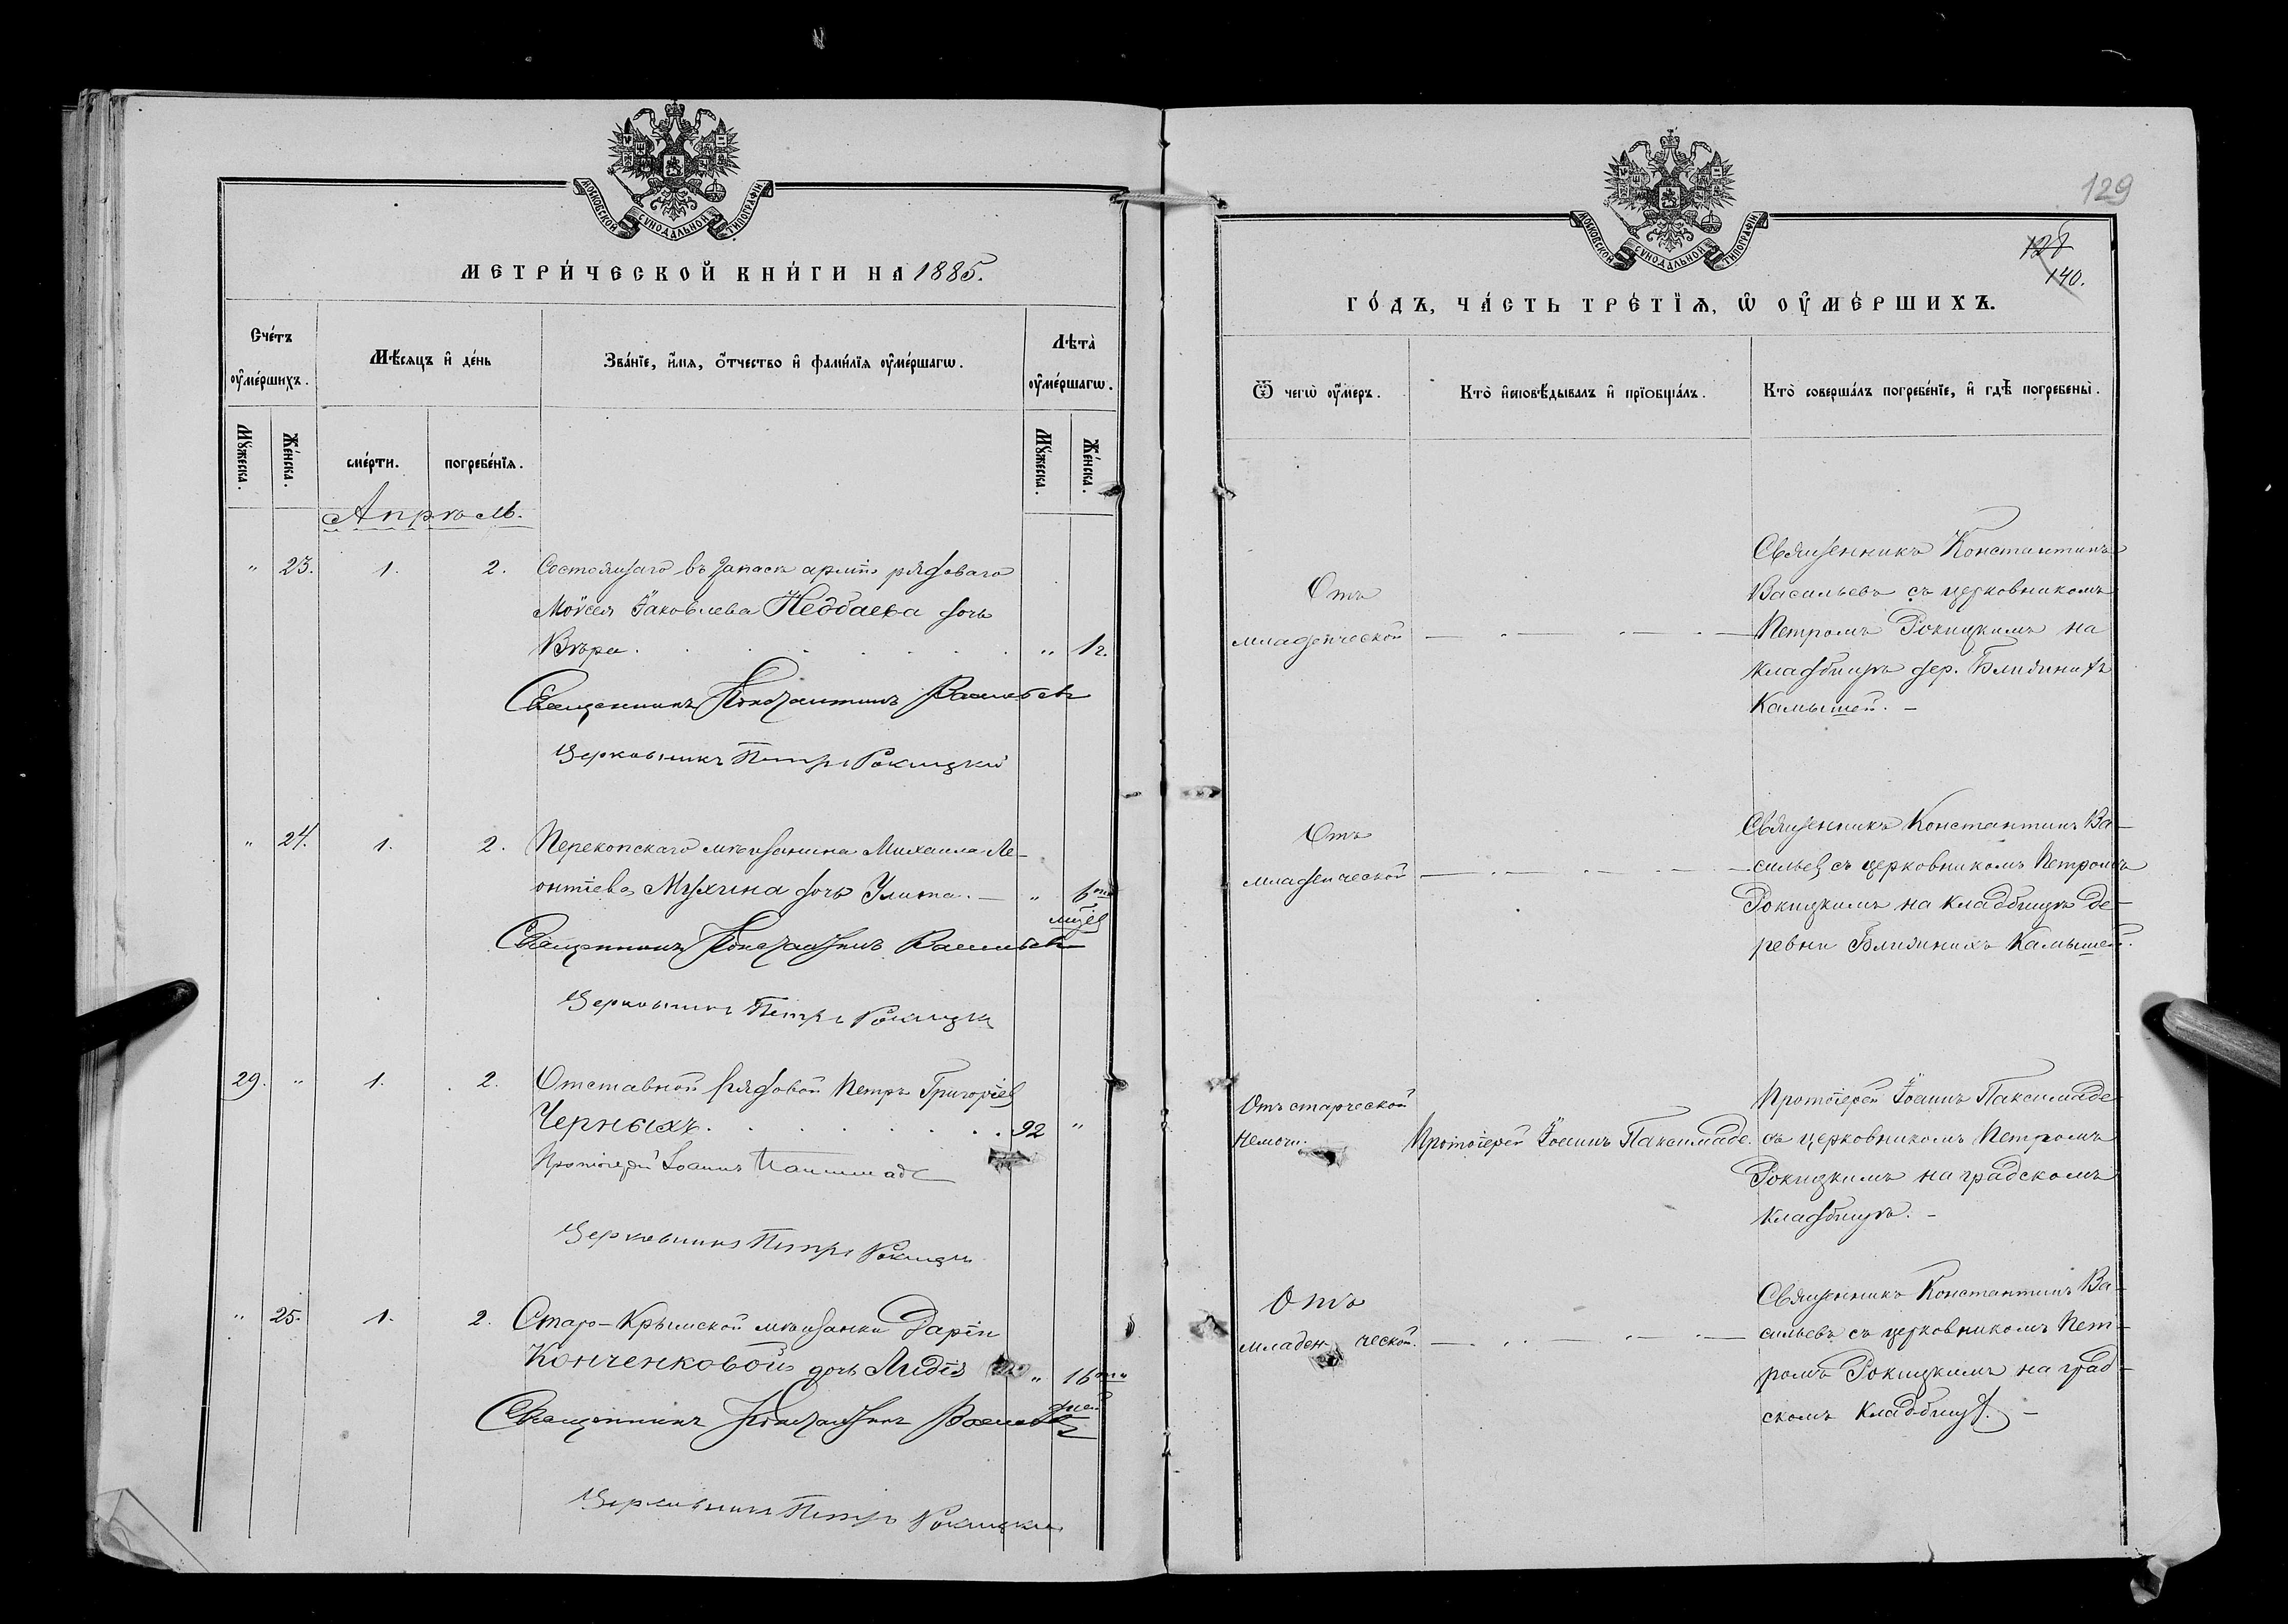 МОСКОВСКОЙ СѴНОДАЛЬНОЙ ТИПОГРАФІИ
МЕТРИ́ЧЕСКОЙ КНИ́ГИ НА 1885.
Сче́тъ ᲂу҆ме́ршихъ.
Мѣ́сяцъ и҆ де́нь
Зва́нїе, и҆́мя, ѻ҆́тчество и҆ фами́лїя ᲂу҆ме́ршагѡ.
Лѣта̀ ᲂу҆ме́ршагѡ.
Мꙋ́жеска.
Же́нска.
сме́рти.
погребе́нїя.
Мꙋ́жеска.
Же́нска.
Апрѣль.
" 23. 1. 2. Состоящаго въ запасѣ арміи рядоваго
Моѵсея Іаковлева Недбаева дочь
Вѣра. " 1 г.
Священникъ Константинъ Васильевъ
Церковникъ Петръ Рокицкій
" 24. 1. 2. Перекопскаго мѣщанина Михаила Ле-
онтіева Мухина дочь Улита. — " 6ти
мцѣв
Священникъ Константинъ Васильевъ
Церковникъ Петръ Рокицкій
29. " 1. 2. Отставной рядовой Петръ Григоріев
Черныхъ. 92 "
Протоіерей Іоаннъ Паксимаде
Церковникъ Петръ Рокицкій
" 25. 1. 2. Старо-Крымской мѣщанки Даріи
Конченковой дочь Лидія " 16ти
дней
Священникъ Константинъ Васильевъ
Церковникъ Петръ Рокицкій
129
МОСКОВСКОЙ СѴНОДАЛЬНОЙ ТИПОГРАФІИ
128
140.
ГО́ДЪ, ЧА́СТЬ ТРЕ́ТЇѦ, Ѡ҆ ОУ҆МЕ́РШИХЪ.
Ѿ чегѡ̀ ᲂу҆́меръ.
Кто̀ и҆сповѣ́дывалъ и҆ прїобща́лъ.
Кто̀ соверша́лъ погребе́нїе, и҆ гдѣ̀ погребены̀.
Отъ
младенческой
Священникъ Константинъ
Васильевъ съ церковникомъ
Петромъ Рокицкимъ на
кладбищѣ дер. Ближнихъ
Камышей. —
Отъ
младенческой
Священникъ Константинъ Ва-
сильев съ церковникомъ Петромъ
Рокицкимъ на кладбищѣ де-
ревни Ближнихъ Камышей.
Отъ старческой
немочи.
Протоіерей Іоаннъ Паксимаде.
Протоіерей Іоаннъ Паксимаде
съ церковникомъ Петромъ
Рокицкимъ на градскомъ
кладбищѣ. —
Отъ
младенческой.
Священникъ Константинъ Ва-
сильевъ съ церковникомъ Пет-
ромъ Рокицкимъ на град-
скомъ кладбищѣ. —